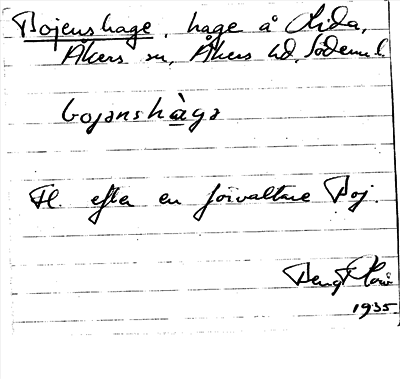 Bojenshage, hage å Lida,
Åkers sn, Åkers hd, Söderml.
bojanshàga
H. efter en förvaltare Boj.
Bengt
1935.